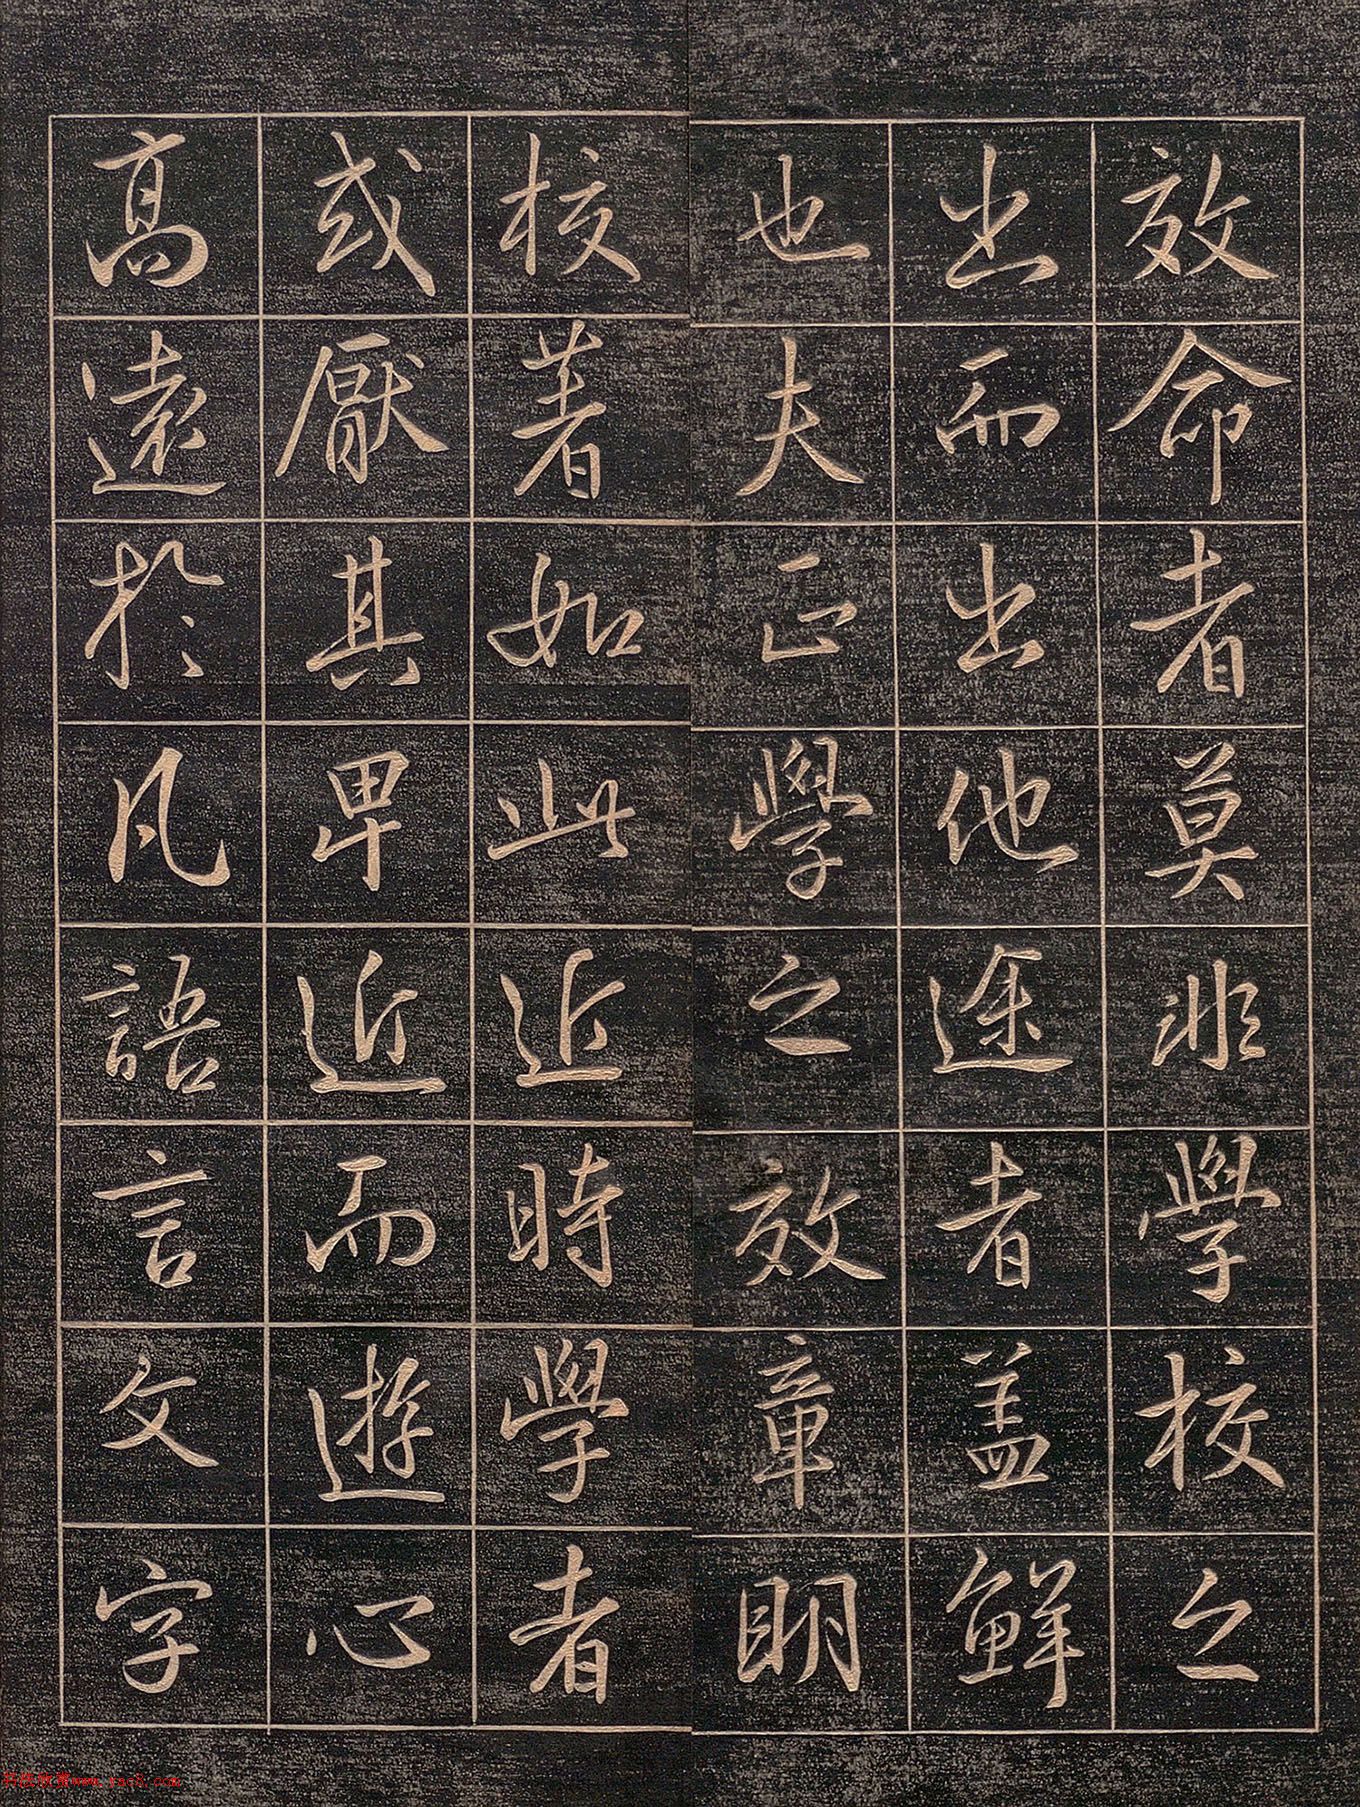 效命者莫非學校之
出而出他途者盖鮮
也夫正學之效章明
校著如此近時學者
或厭其卑近而遊心
高遠於凡語言文字